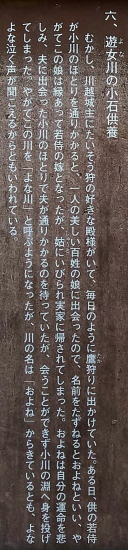 六、遊女川の小石供養
よな
むかし、川越城主にたいそう狩の好きな殿様がいて、毎日のように鷹狩りに出かけていた。ある日、供の若侍
が小川のほとりを通りかかると、一人の美しい百姓の娘に出会ったので、名前をたずねるとおよねといい、や
がてこの娘は縁あって若侍の嫁となったが、姑にいびられ実家に帰されてしまった。およねは自分の運命を悲
しみ、夫に出会った小川のほとりで夫が通りかかるのを待っていたが、会うことができず小川の淵へ身を投げ
てしまった。やがてこの川を「よな川」と呼ぶようになったが、川の名は「およね」からきているとも、よな
よな泣く声が聞こえるからともいわれている。